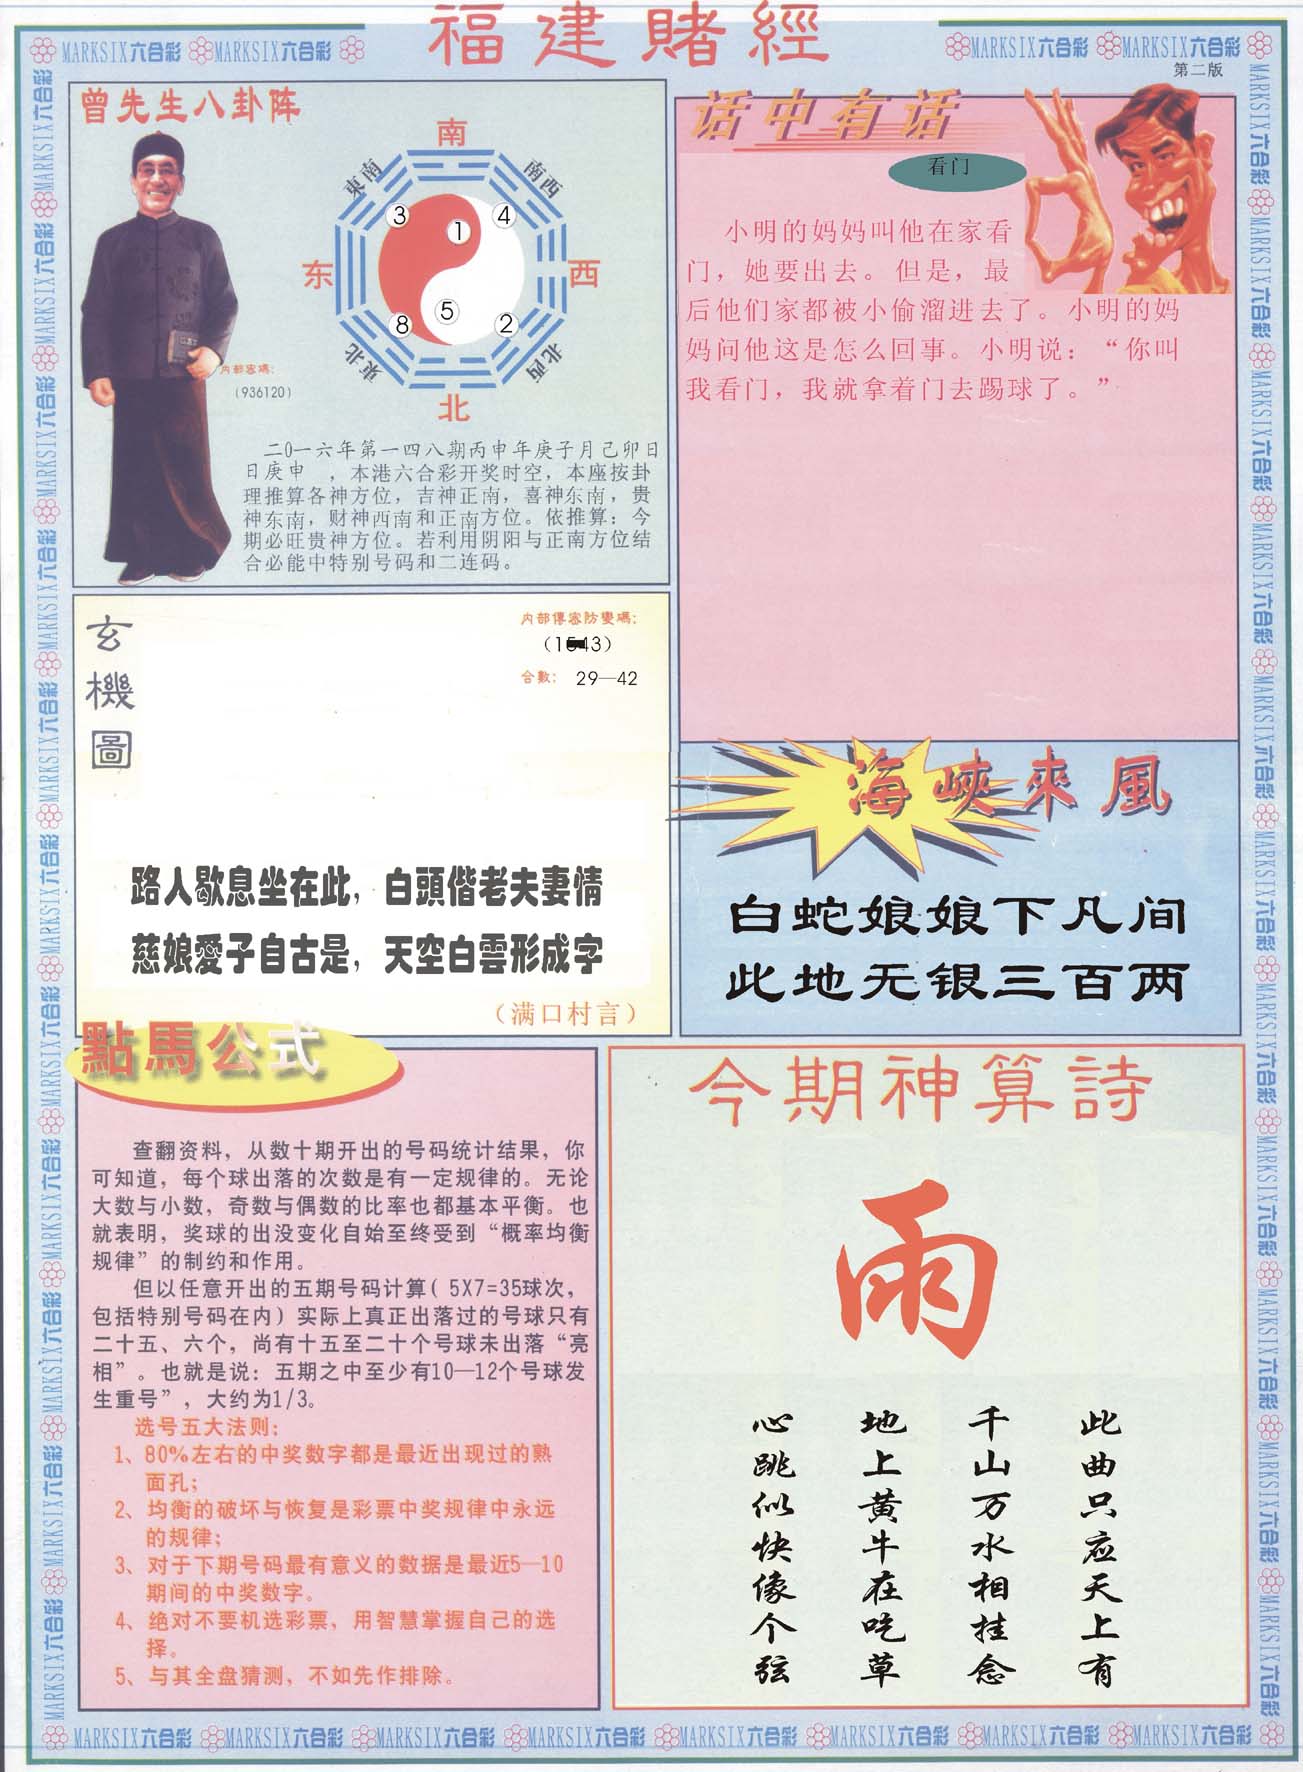 福建賭經
MARKSIX六合彩 MARKSIX六合彩
MARKSIX六合彩 MARKSIX六合彩
第二版
曾先生八卦阵
南
東南
南西
3
4
1
东
西
5
8
2
東北
北西
北
内部密碼：
（936120）
二0一六年第一四八期丙申年庚子月己卯日
日庚申 ，本港六合彩开奖时空，本座按卦
理推算各神方位，吉神正南，喜神东南，贵
神东南，财神西南和正南方位。依推算：今
期必旺贵神方位。若利用阴阳与正南方位结
合必能中特别号码和二连码。
话中有话
看门
小明的妈妈叫他在家看
门，她要出去。但是，最
后他们家都被小偷溜进去了。小明的妈
妈问他这是怎么回事。小明说：“你叫
我看门，我就拿着门去踢球了。”
玄機圖
内部傳密防變碼：
合數： 29—42
路人歇息坐在此，白頭偕老夫妻情
慈娘愛子自古是，天空白雲形成字
（满口村言）
海峽來風
白蛇娘娘下凡间
此地无银三百两
點馬公式
查翻资料，从数十期开出的号码统计结果，你
可知道，每个球出落的次数是有一定规律的。无论
大数与小数，奇数与偶数的比率也都基本平衡。也
就表明，奖球的出没变化自始至终受到“概率均衡
规律”的制约和作用。
但以任意开出的五期号码计算( 5X7=35球次，
包括特别号码在内）实际上真正出落过的号球只有
二十五、六个，尚有十五至二十个号球未出落“亮
相”。也就是说：五期之中至少有10—12个号球发
生重号”，大约为1/3。
选号五大法则：
1、80%左右的中奖数字都是最近出现过的熟
面孔；
2、均衡的破坏与恢复是彩票中奖规律中永远
的规律；
3、对于下期号码最有意义的数据是最近5—10
期间的中奖数字。
4、绝对不要机选彩票，用智慧掌握自己的选
择。
5、与其全盘猜测，不如先作排除。
今期神算詩
雨
此曲只应天上有
千山万水相挂念
地上黄牛在吃草
心跳似快像个弦
MARKSIX六合彩 MARKSIX六合彩 MARKSIX六合彩 MARKSIX六合彩 MARKSIX六合彩 MARKSIX六合彩 MARKSIX六合彩 MARKSIX六合彩